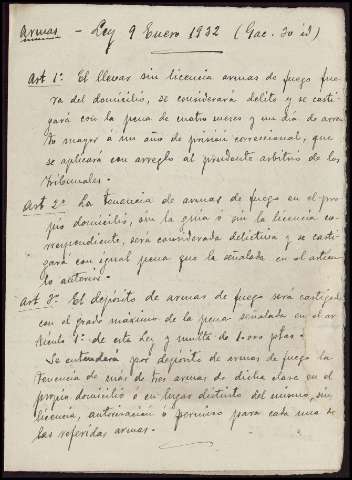 Armas - Ley 9 Enero 1932 (Gac. 30 id)
Art 1º. El llevar sin licencia armas de fuego fue-
ra del domicilio, se considerará delito y se casti-
gará con la pena de cuatro meses y un día de arres-
to mayor á un año de prisión correccional, que
se aplicará con arreglo al prudente arbitrio de los
Tribunales.
Art 2º La tenencia de armas de fuego en el pro-
pio domicilio, sin la guía ó sin la licencia co-
rrespondiente, será considerada delictiva y se casti-
gará con igual pena que la señalada en el artícu-
lo anterior.
Art 3º. El depósito de armas de fuego será castigado
con el grado máximo de la pena señalada en el ar-
tículo 1º de esta Ley y multa de ptas.
Se entenderá por depósito de armas de fuego la
tenencia de más de tres armas de dicha clase en el
propio domicilio ó en lugar distinto del mismo, sin
licencia, autorización ó permiso para cada una de
las referidas armas.